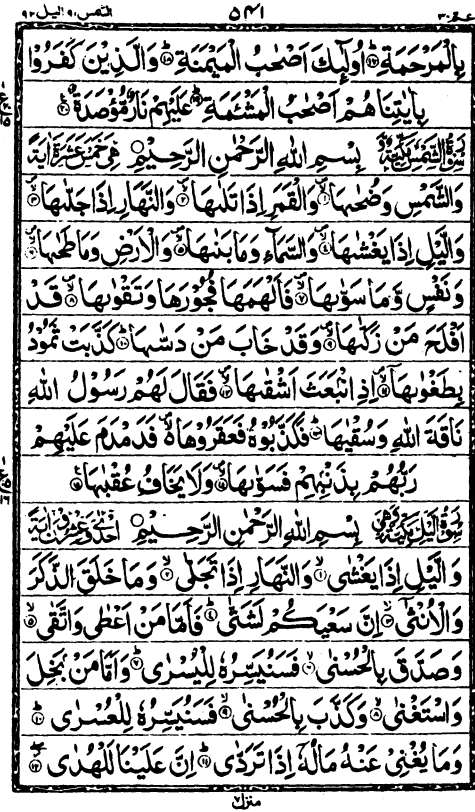 الشمس ٩١ اليل ٩٢ ٥٤١ عم ٣٠
بِالْمَرْحَمَةِ ﴿١٧﴾ اُولٰٓئِكَ اَصْحٰبُ الْمَيْمَنَةِ ﴿١٨﴾ وَالَّذِيْنَ كَفَرُوْا
بِاٰيٰتِنَا هُمْ اَصْحٰبُ الْمَشْـَٔمَةِ ﴿١٩﴾ عَلَيْهِمْ نَارٌ مُّؤْصَدَةٌ ﴿٢٠﴾
سُوْرَةُ الشَّمْسِ مَكِّيَّةٌ بِسْمِ اللهِ الرَّحْمٰنِ الرَّحِيْمِ هِيَ خَمْسَ عَشْرَةَ اٰيَةً
وَالشَّمْسِ وَضُحٰىهَا ﴿١﴾ وَالْقَمَرِ اِذَا تَلٰىهَا ﴿٢﴾ وَالنَّهَارِ اِذَا جَلّٰىهَا ﴿٣﴾
وَالَّيْلِ اِذَا يَغْشٰىهَا ﴿٤﴾ وَالسَّمَآءِ وَمَا بَنٰىهَا ﴿٥﴾ وَالْاَرْضِ وَمَا طَحٰىهَا ﴿٦﴾
وَنَفْسٍ وَّمَا سَوّٰىهَا ﴿٧﴾ فَاَلْهَمَهَا فُجُوْرَهَا وَتَقْوٰىهَا ﴿٨﴾ قَدْ
اَفْلَحَ مَنْ زَكّٰىهَا ﴿٩﴾ وَقَدْ خَابَ مَنْ دَسّٰىهَا ﴿١٠﴾ كَذَّبَتْ ثَمُوْدُ
بِطَغْوٰىهَا ﴿١١﴾ اِذِ انْۢبَعَثَ اَشْقٰىهَا ﴿١٢﴾ فَقَالَ لَهُمْ رَسُوْلُ اللهِ
نَاقَةَ اللهِ وَسُقْيٰهَا ﴿١٣﴾ فَكَذَّبُوْهُ فَعَقَرُوْهَا فَدَمْدَمَ عَلَيْهِمْ
رَبُّهُمْ بِذَنْۢبِهِمْ فَسَوّٰىهَا ﴿١٤﴾ وَلَا يَخَافُ عُقْبٰهَا ﴿١٥﴾
سُوْرَةُ الَّيْلِ مَكِّيَّةٌ بِسْمِ اللهِ الرَّحْمٰنِ الرَّحِيْمِ اِحْدٰى وَعِشْرُوْنَ اٰيَةً
وَالَّيْلِ اِذَا يَغْشٰى ﴿١﴾ وَالنَّهَارِ اِذَا تَجَلّٰى ﴿٢﴾ وَمَا خَلَقَ الذَّكَرَ
وَالْاُنْثٰى ﴿٣﴾ اِنَّ سَعْيَكُمْ لَشَتّٰى ﴿٤﴾ فَاَمَّا مَنْ اَعْطٰى وَاتَّقٰى ﴿٥﴾
وَصَدَّقَ بِالْحُسْنٰى ﴿٦﴾ فَسَنُيَسِّرُهٗ لِلْيُسْرٰى ﴿٧﴾ وَاَمَّا مَنْۢ بَخِلَ
وَاسْتَغْنٰى ﴿٨﴾ وَكَذَّبَ بِالْحُسْنٰى ﴿٩﴾ فَسَنُيَسِّرُهٗ لِلْعُسْرٰى ﴿١٠﴾
وَمَا يُغْنِيْ عَنْهُ مَالُهٗٓ اِذَا تَرَدّٰى ﴿١١﴾ اِنَّ عَلَيْنَا لَلْهُدٰى ﴿١٢﴾
منزل ٧